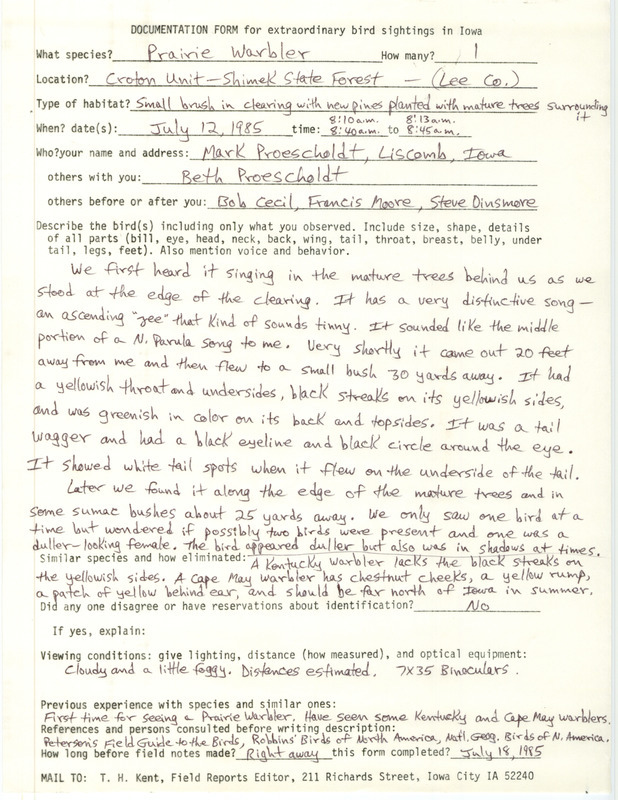 DOCUMENTATION FORM for extraordinary bird sightings in Iowa
What species? Prairie Warbler How many? 1
Location? Croton Unit-Shimek State Forest - (Lee Co.)
Type of habitat? Small brush in clearing with new pines planted with mature trees surrounding it
8:10 a.m. 8:13 a.m.
When? date(s): July 12, 1985 time: 8:40 a.m. to 8:45 a.m.
Who? your name and address: Mark Proescholdt, Liscomb, Iowa
others with you: Beth Proescholdt
others before or after you: Bob Cecil, Francis Moore, Steve Dinsmore
Describe the bird(s) including only what you observed. Include size, shape, details
of all parts (bill, eye, head, neck, back, wing, tail, throat, breast, belly, under
tail, legs, feet). Also mention voice and behavior.
We first heard it singing in the mature trees behind us as we
stood at the edge of the clearing. It has a very distinctive song -
an ascending "zee" that kind of sounds tinny. It sounded like the middle
portion of a N. Parula song to me. Very shortly it came out 20 feet
away from me and then flew to a small bush 30 yards away. It had
a yellowish throat and undersides, black streaks on its yellowish sides,
and was greenish in color on its back and topsides. It was a tail
wagger and had a black eyeline and black circle around the eye.
It showed white tail spots when it flew on the underside of the tail.
Later we found it along the edge of the mature trees and in
some sumac bushes about 25 yards away. We only saw one bird at a
time but wondered if possibly two birds were present and one was a
duller-looking female. The bird appeared duller but also was in shadows at times.
Similar species and how eliminated: A Kentucky warbler lacks the black streaks on
the yellowish sides. A Cape May warbler has chestnut cheeks, a yellow rump,
a patch of yellow behind ear, and should be far north of Iowa in summer.
Did any one disagree or have reservations about identification? No
If yes, explain:
Viewing conditions: give lighting, distance (how measured), and optical equipment:
Cloudy and a little foggy. Distances estimated. 7X35 Binoculars.
Previous experience with species and similar ones:
First time for seeing a Prairie Warbler. Have seen some Kentucky and Cape May warblers.
References and persons consulted before writing description:
Peterson's Field Guide to the Birds, Robbins' Birds of North America, Natl. Geog. Birds of N. America.
How long before field notes made? Right away this form completed? July 18, 1985
MAIL TO: T. H. Kent, Field Reports Editor, 211 Richards Street, Iowa City IA 52240